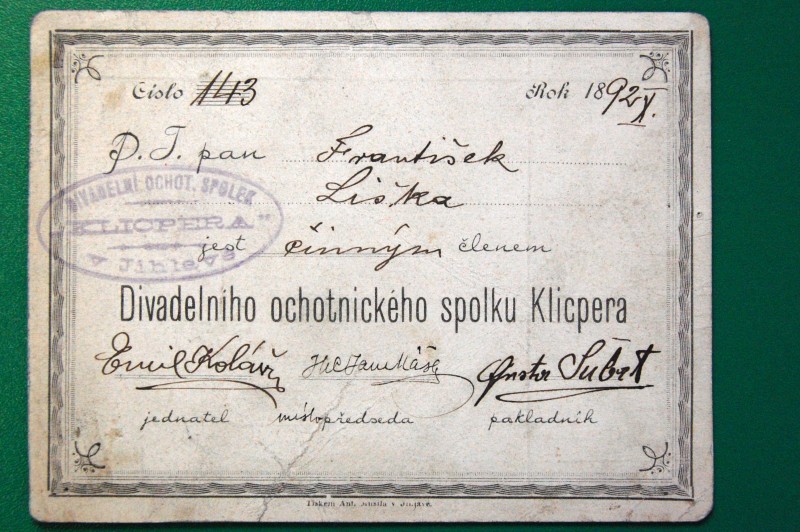 Číslo 143
Rok 1892 X.
P. T. pan František
Liška
DIVADELNÍ OCHOT. SPOLEK
„KLICPERA"
v Jihlavě
jest činným členem
Divadelního ochotnického spolku Klicpera
Emil Kolář
Šubrt
jednatel místopředseda pokladník
Tiskem Ant. v Jihlavě.